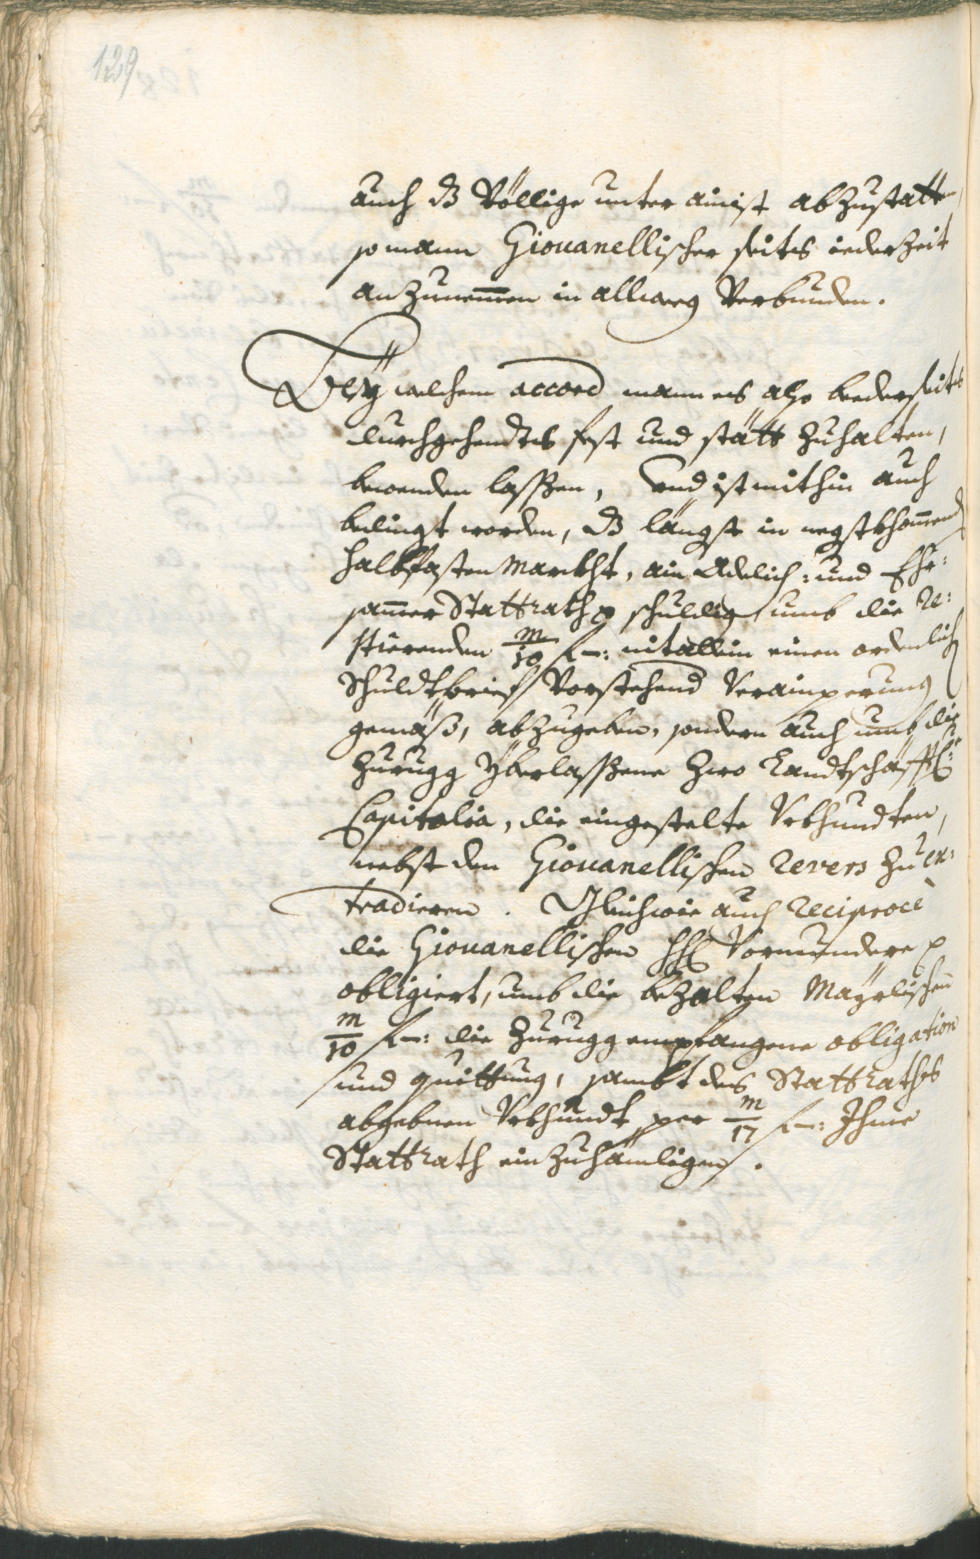 129
auch dß völlige unter ainist abzustatten,
so mann Giouanellischer seits iederzeit
anzunemmen in allweeg verbunden.
Beÿ welchem accord mann es also beederseits
durchgehendts fest und stätt zuhalten,
bewenden lassen, und ist mithin auch
bedingt worden, dß längst in negstkhommend
Halbfasten Marckht, ain Adelich: und Ehr:
samer Stattrath schuldig, umb die re:
stierenden m/10 f: nit allein einen ordenlich
Schuldtbrief, vorstehend Verainperung
gemäß, abzugeben, sondern auch umb die
zurugg yberlassene zwo Landtschäfftl:
Capitalia, die eingestelte Vrkhundten,
nebst den Giouanellischen Revers zu ex:
tradieren. Gleichwie auch reciprocè
die Giouanellischen HH: Vormundere
obligiert, umb die bezalten Maÿrlischen
m/10 f: die zurugg empfangene obligation
und quittung, sambt des Stattraths
abgebnen Vrkhundt per m/17 f: Ihme
Stattrath einzuhändigen.